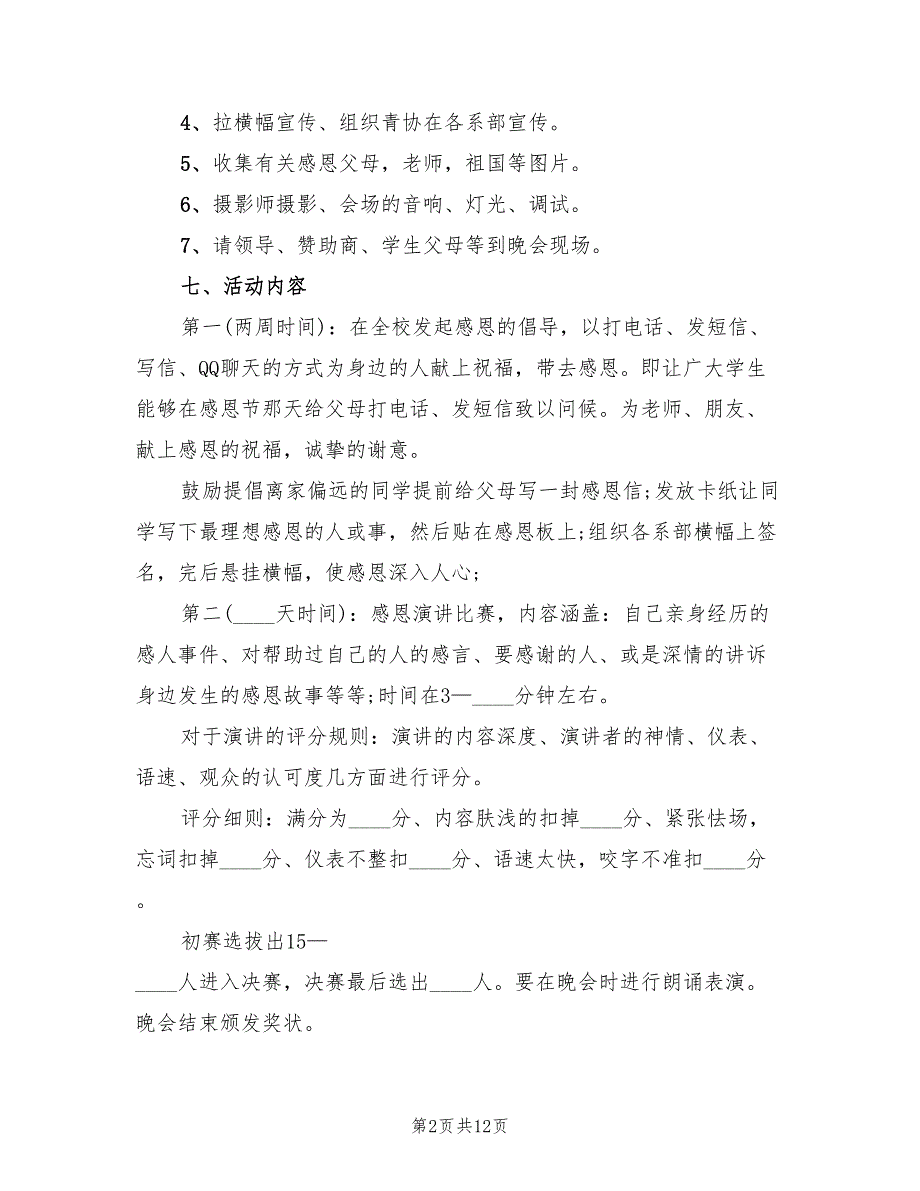 4、拉横幅宣传、组织青协在各系部宣传。
5、收集有关感恩父母，老师，祖国等图片。
6、摄影师摄影、会场的音响、灯光、调试。
7、请领导、赞助商、学生父母等到晚会现场。
七、活动内容
第一(两周时间)：在全校发起感恩的倡导，以打电话、发短信、
写信、QQ聊天的方式为身边的人献上祝福，带去感恩。即让广大学生
能够在感恩节那天给父母打电话、发短信致以问候。为老师、朋友、
献上感恩的祝福，诚挚的谢意。
鼓励提倡离家偏远的同学提前给父母写一封感恩信;发放卡纸让同
学写下最理想感恩的人或事，然后贴在感恩板上;组织各系部横幅上签
名，完后悬挂横幅，使感恩深入人心;
第二(____天时间)：感恩演讲比赛，内容涵盖：自己亲身经历的
感人事件、对帮助过自己的人的感言、要感谢的人、或是深情的讲诉
身边发生的感恩故事等等;时间在3—____分钟左右。
对于演讲的评分规则：演讲的内容深度、演讲者的神情、仪表、
语速、观众的认可度几方面进行评分。
评分细则：满分为____分、内容肤浅的扣掉____分、紧张怯场，
忘词扣掉____分、仪表不整扣____分、语速太快，咬字不准扣____分
。
初赛选拔出15—
____人进入决赛，决赛最后选出____人。要在晚会时进行朗诵表演。
晚会结束颁发奖状。
第2页共12页